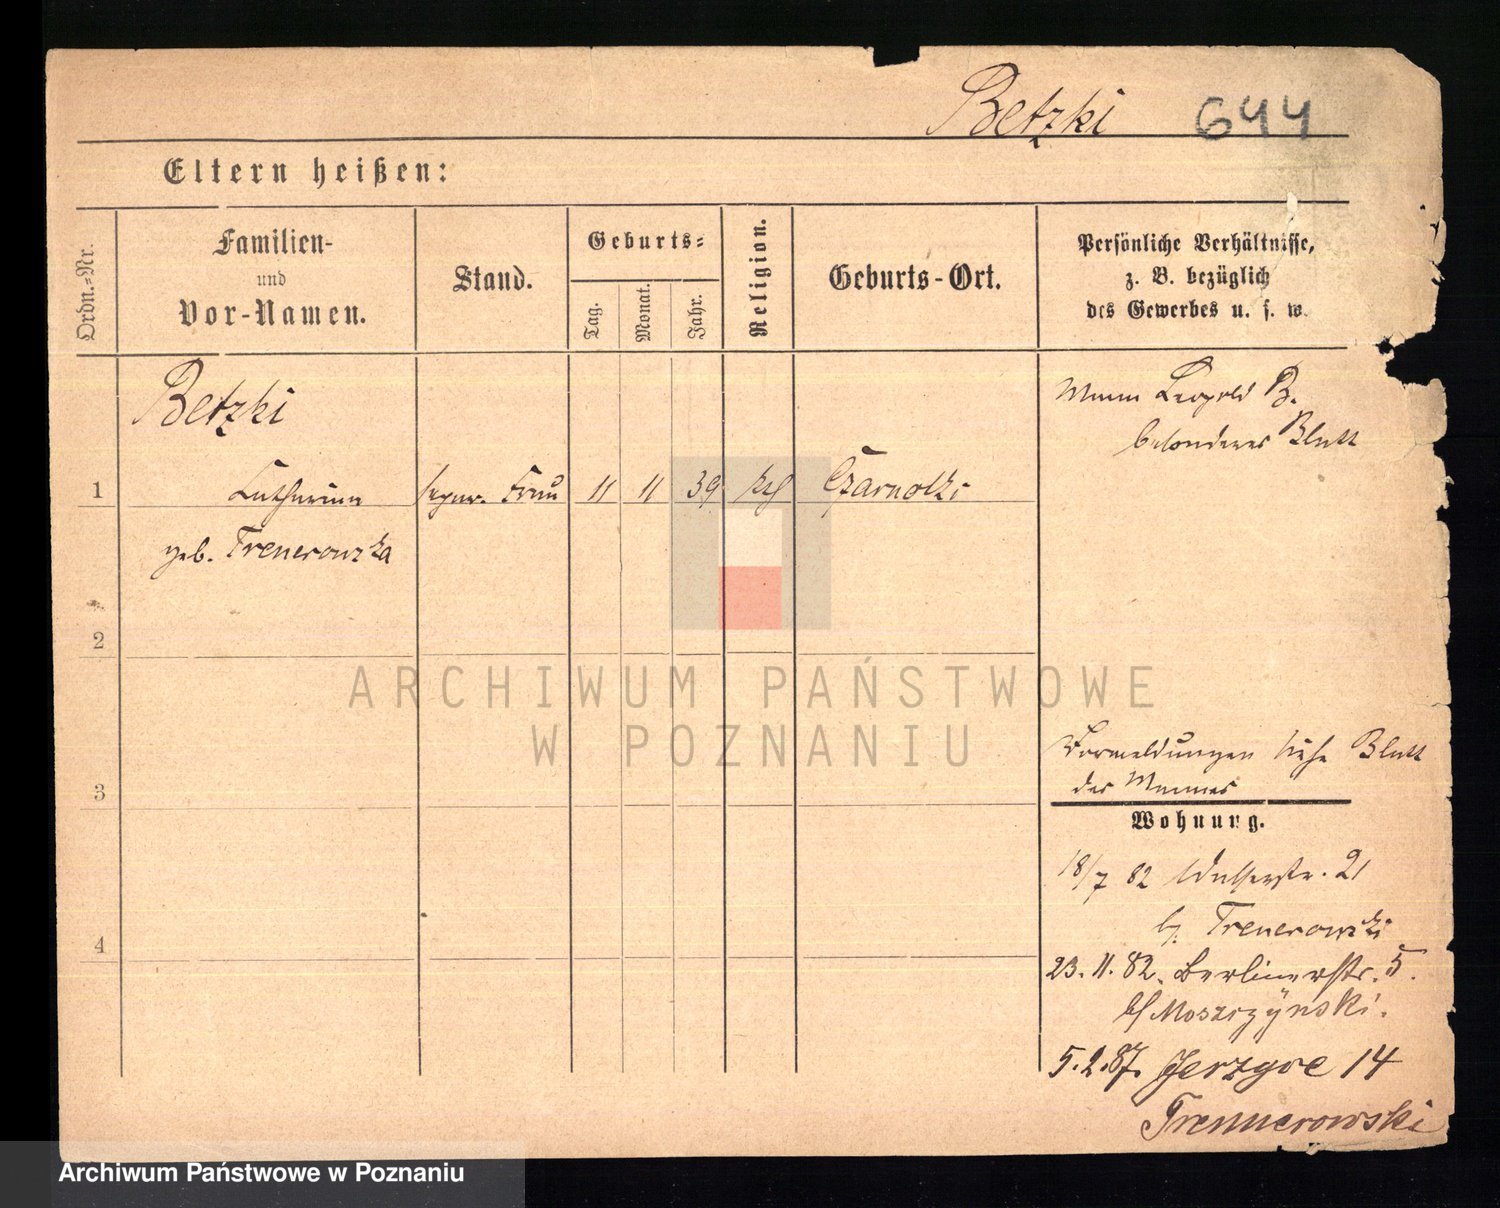 Betzki 644
Eltern heißen:
Ordn.-Nr.
Familien-
und
Vor-Namen.
Stand.
Geburts-
Tag.
Monat.
Jahr.
Religion.
Geburts-Ort.
Persönliche Verhältnisse,
z. B. bezüglich
des Gewerbes u. s. w.
Betzki
Mann Leopold B.
besonderes Blatt
1 Catharina separ. Frau 11 11 39 ktl Czarnolki
geb. Trenerowzka
2
3
4
Vormeldungen siehe Blatt
des Mannes
Wohnung.
18/7 82 21
b/ Trenerowzki
23. 11. 82. Berlinerstr. 5.
b/ Moszczÿnski.
5.2.87. Jerzyce 14
Trennerowski
ARCHIWUM PAŃSTWOWE
W POZNANIU
Archiwum Państwowe w Poznaniu